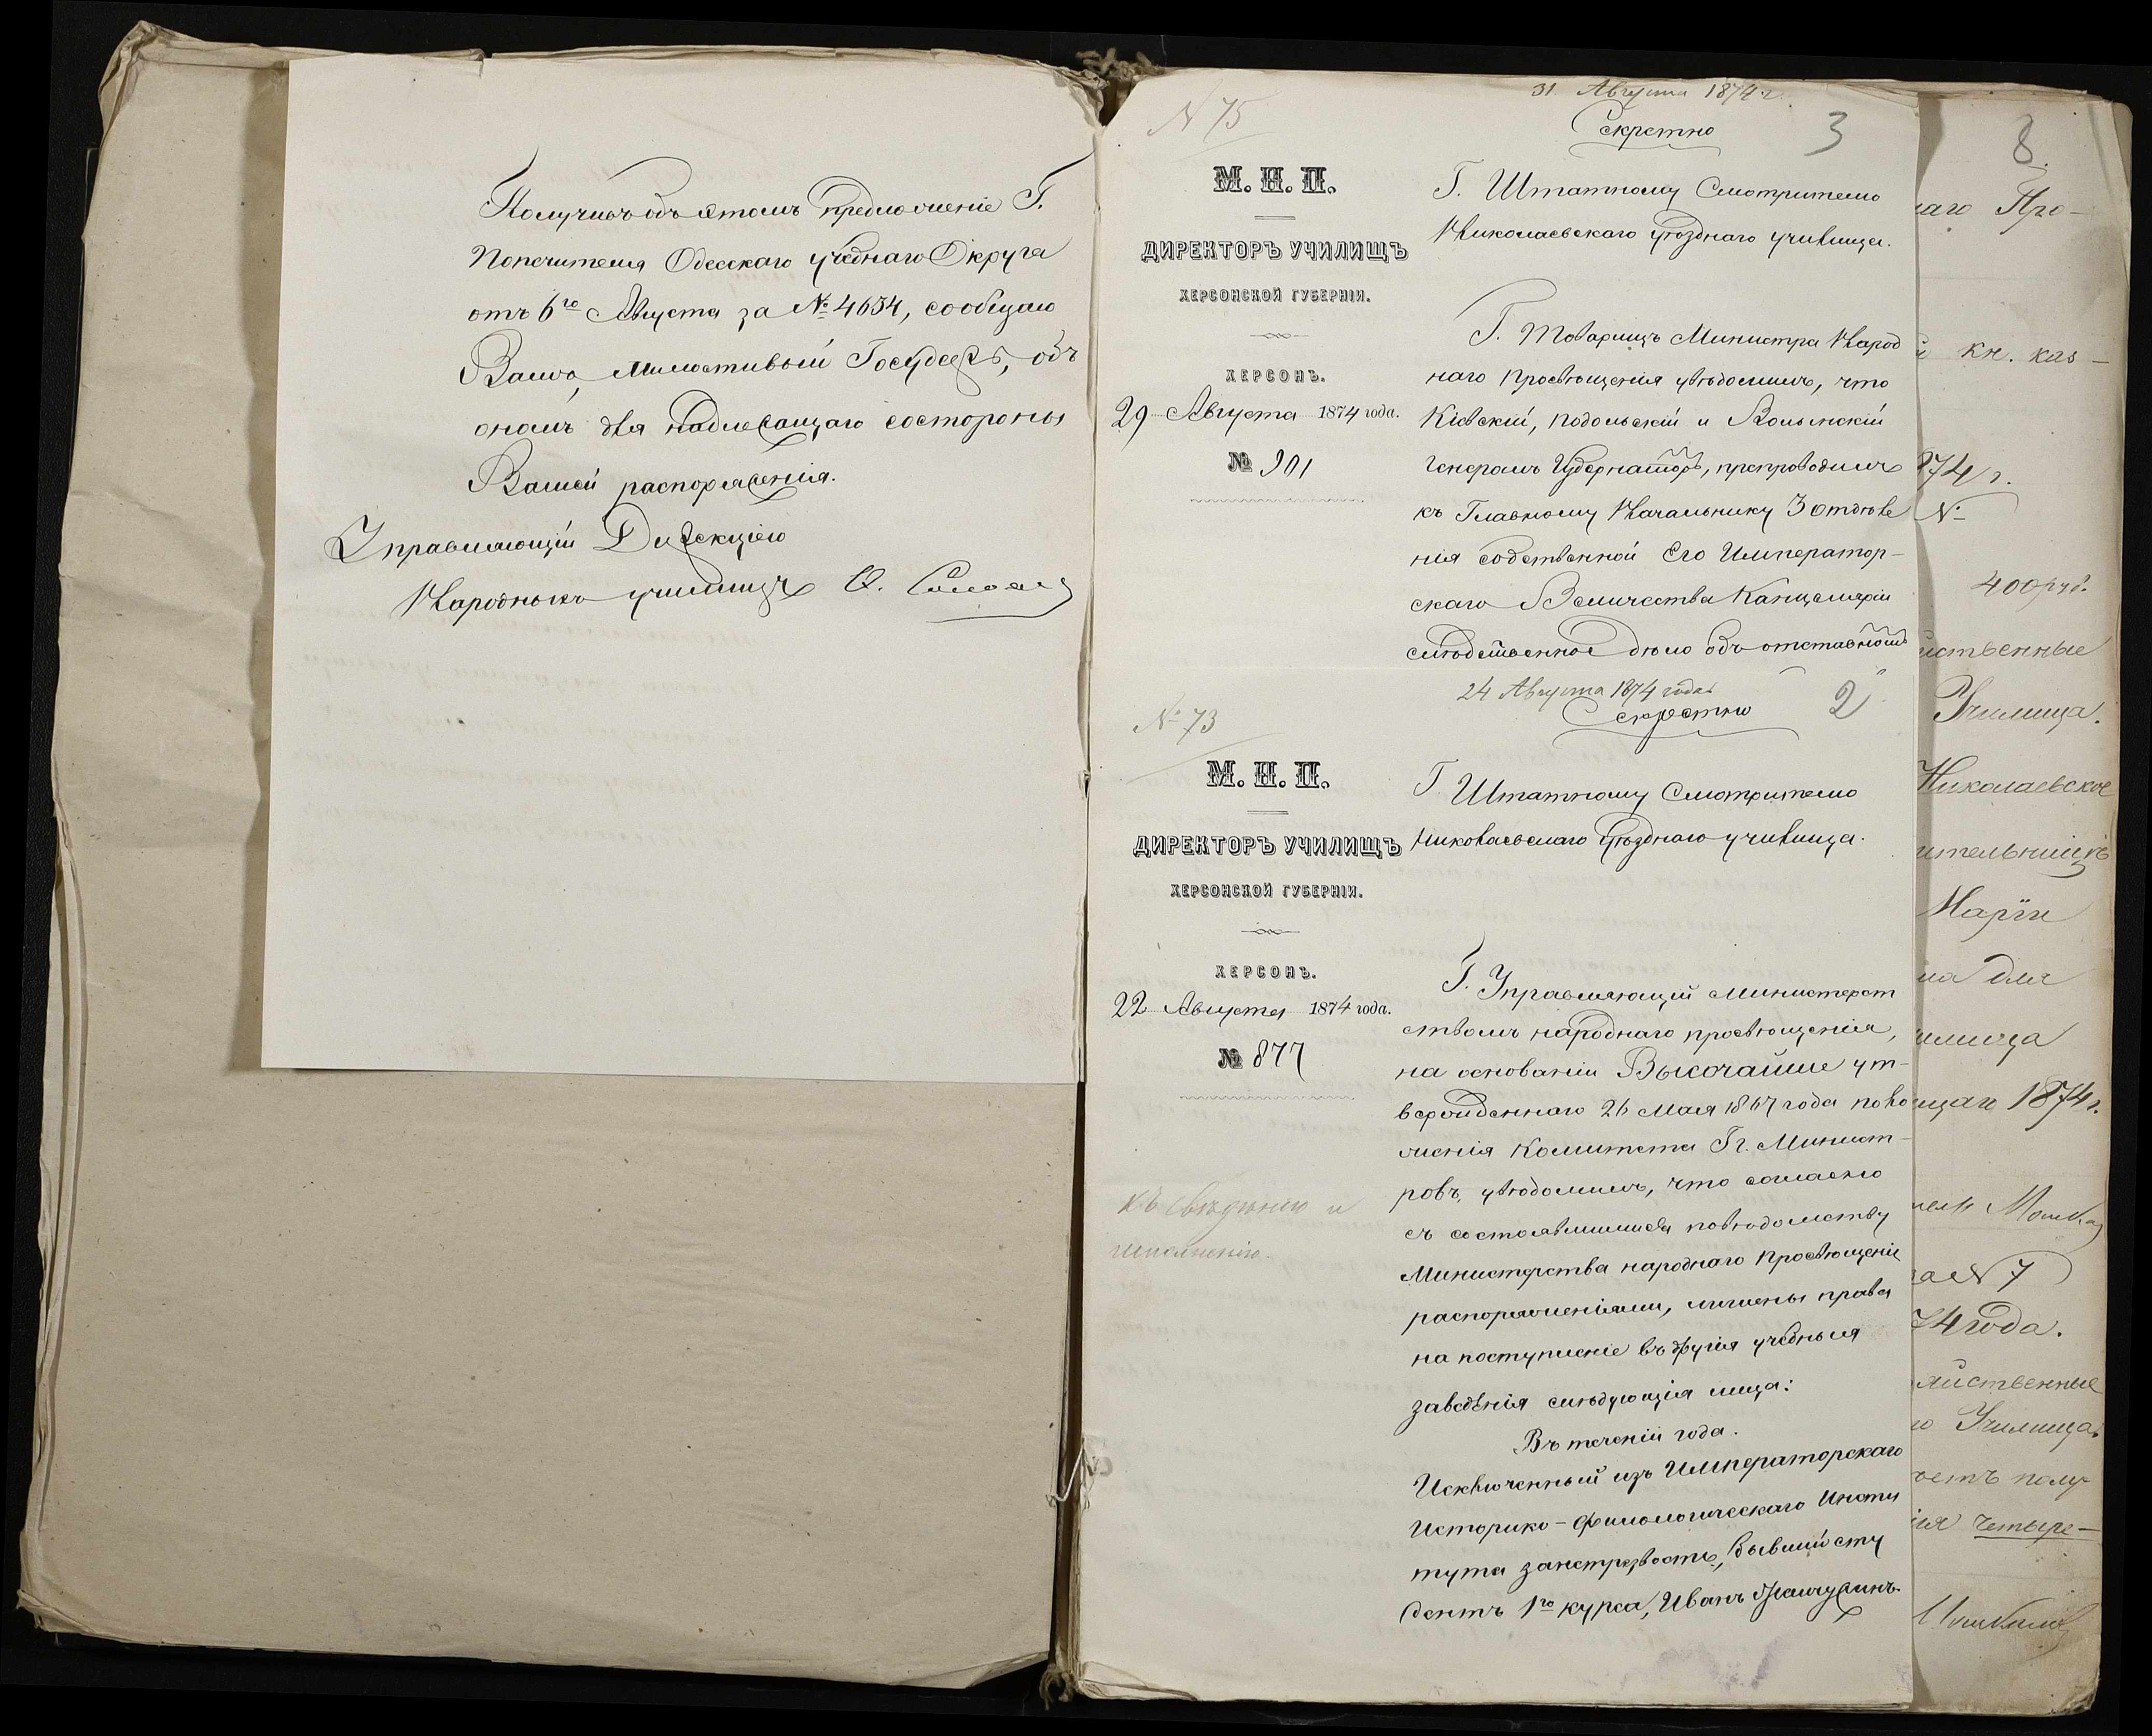 Получивъ объ этомъ предложеніе Г.
Попечителя Одесскаго учебнаго Округа
отъ 6го Августа за № 4634, сообщаю
Вамъ, Милостивый Государь, объ
ономъ для надлежащаго состороны
Вашей распоряженія.
Управляющій Дирекціею
Народныхъ училищъ
N 75
31 Августа 1874 г.
Секретно
3
М. Н. П.
ДИРЕКТОРЪ УЧИЛИЩЪ
ХЕРСОНСКОЙ ГУБЕРНІИ.
ХЕРСОНЪ.
29 Августа 1874 года.
№ 901
Г. Штатному Смотрителю
Николаевскаго уѣзднаго училища.
Г. Товарищъ Министра Народ
наго просвѣщенія увѣдомилъ, что
Кіевскій, Подольскій и Волынскій
Генералъ Губернаторъ, препроводилъ
къ Главному Начальнику 3 отдѣле
нія собственной Его Император-
скаго Величества Канцеляріи
слѣдственное дѣло объ отставномъ
№ 73
24 Августа 1874 года
Секретно
2
М. Н. П.
ДИРЕКТОРЪ УЧИЛИЩЪ
ХЕРСОНСКОЙ ГУБЕРНІИ.
ХЕРСОНЪ.
22 Августа 1874 года.
№ 877
Къ свѣденію и
исполненію.
Г Штатному Смотрителю
Николаевскаго уѣзднаго училища.
Г. Управляющій Министерст
ствомъ народнаго просвѣщенія,
на основаніи Высочайше ут-
вержденнаго 26 Мая 1867 года поло
женія Комитета Гг. Минист-
ровъ, увѣдомилъ, что согласно
съ состоявшимися повѣдомству
Министерства народнаго просвѣщенія
распоряженіями, лишены права
на поступленіе въ другія учебныя
заведенія слѣдующія лица:
Въ теченіи года.
Исключенный изъ Императорскаго
Историко-филологическаго Инсти
тута занетрезвость, бывшій сту
дентъ 1го курса, Иванъ
8.
наго Про-
кн. каз-
874 г.
№
400 руб.
йственные
Училища.
Николаевское
Маріи
на для
илища
щаго 1874 г.
за № 7
74 года.
яйственные
го Училища,
аетъ полу-
ія четыре-